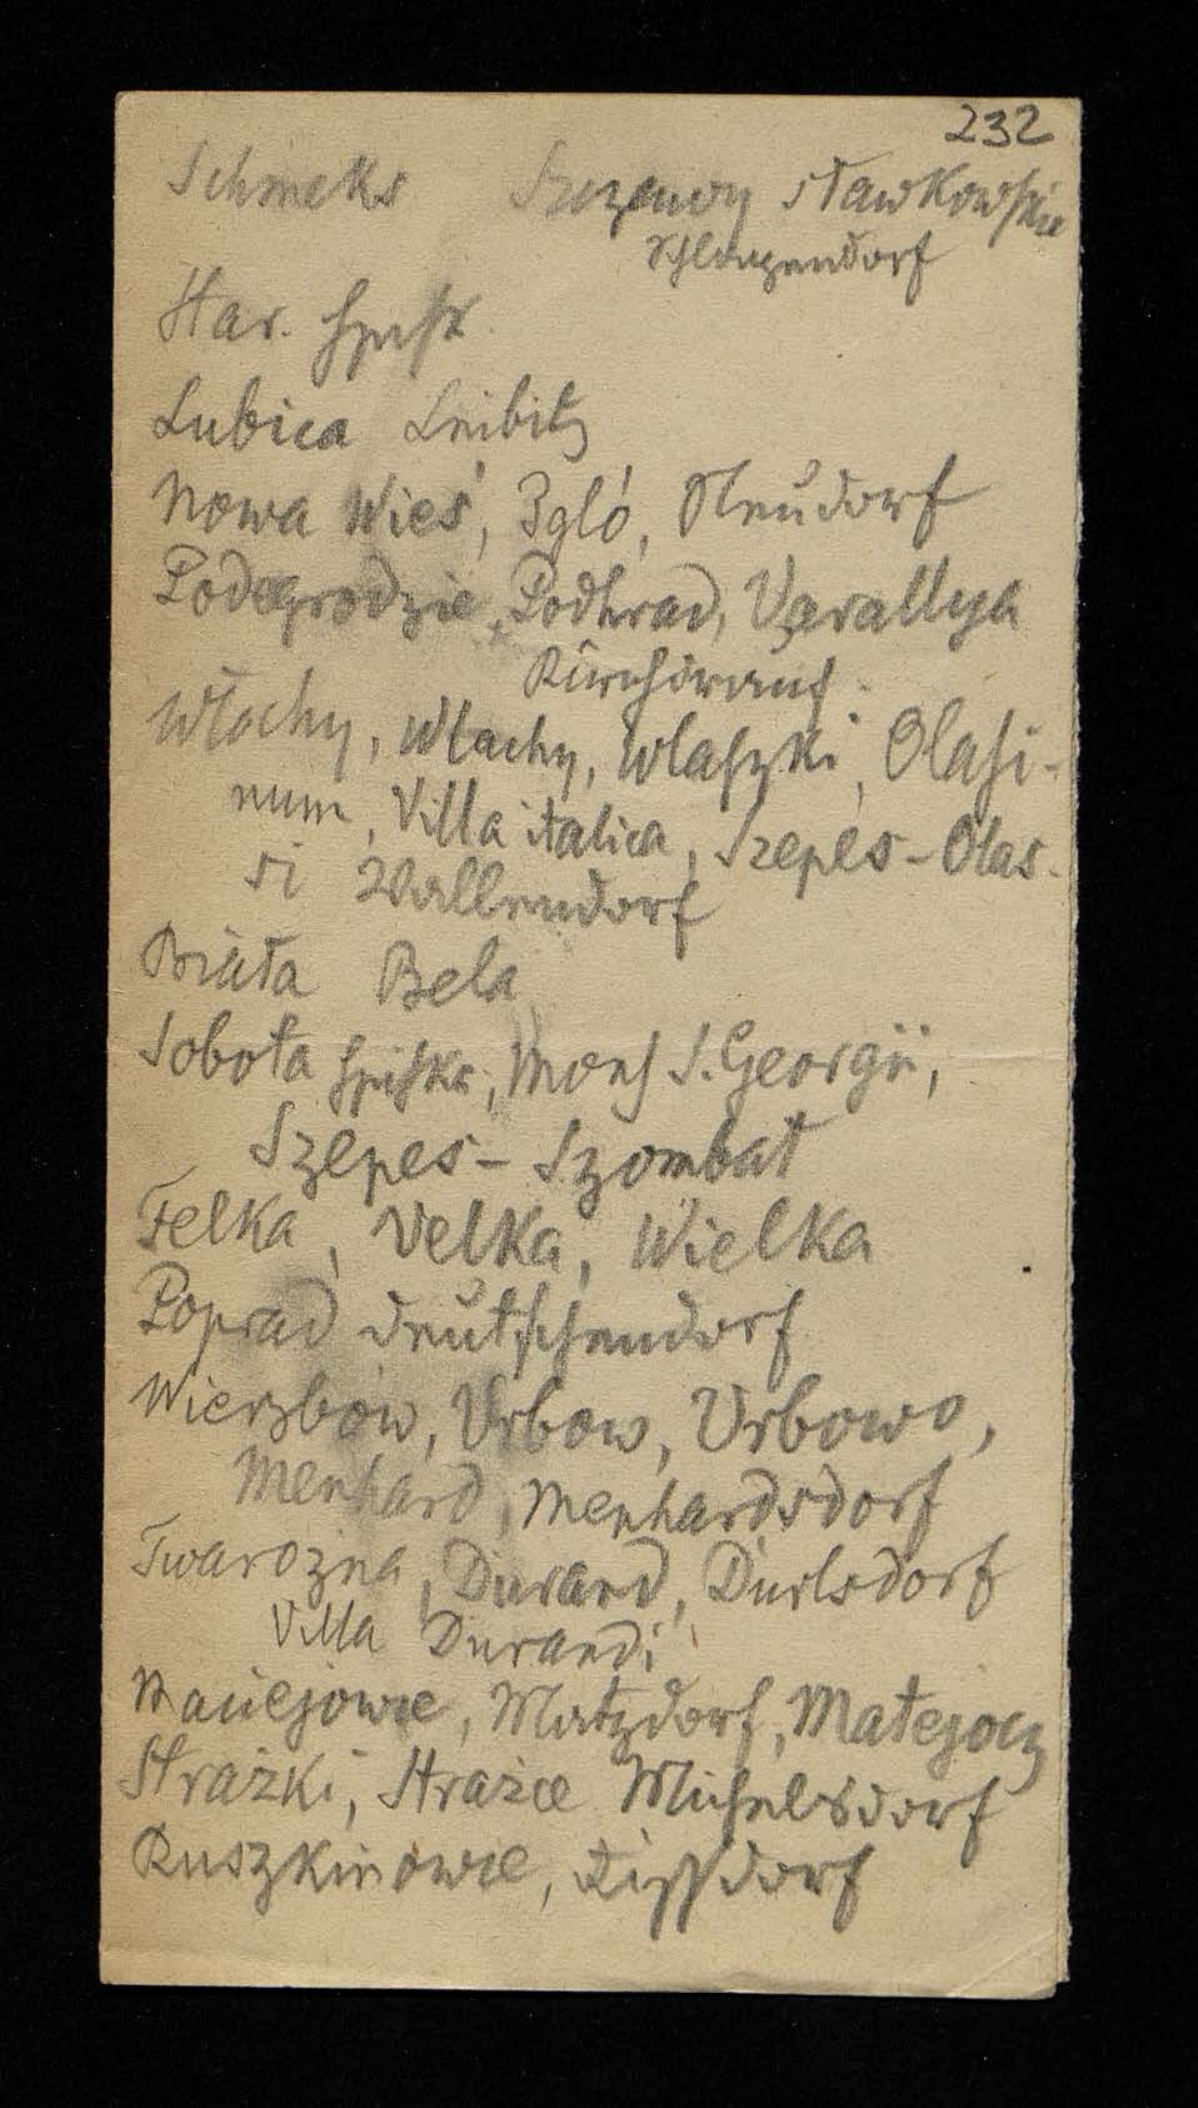 232
Schmeks Szczawy sławkowskie
Schlagendorf
Har.
Lubica Leibitz
Nowa Wieś, Igló, Neudorf
Podegrodzie, Podhrad, Varallya
Kirchdrauf.
Włochy, Wlachy, Wlaszki, Olasi-
num, Villa italica, Szepes-Olas-
si Wallendorf
Biała Bela
Sobota spiska, Mons S. Georgii,
Szepes-Szombat
Felka, Velka, Wielka
Poprad Deutschendorf
Wierzbów, Vrbow, Vrbowo,
Menhard, Menhardsdorf
Twarożna, Durand, Durlsdorf
Villa Durandi
Maciejowce, Matzdorf, Matejocz
Strażki, Straże Michelsdorf
Ruszkinowce, Rissdorf